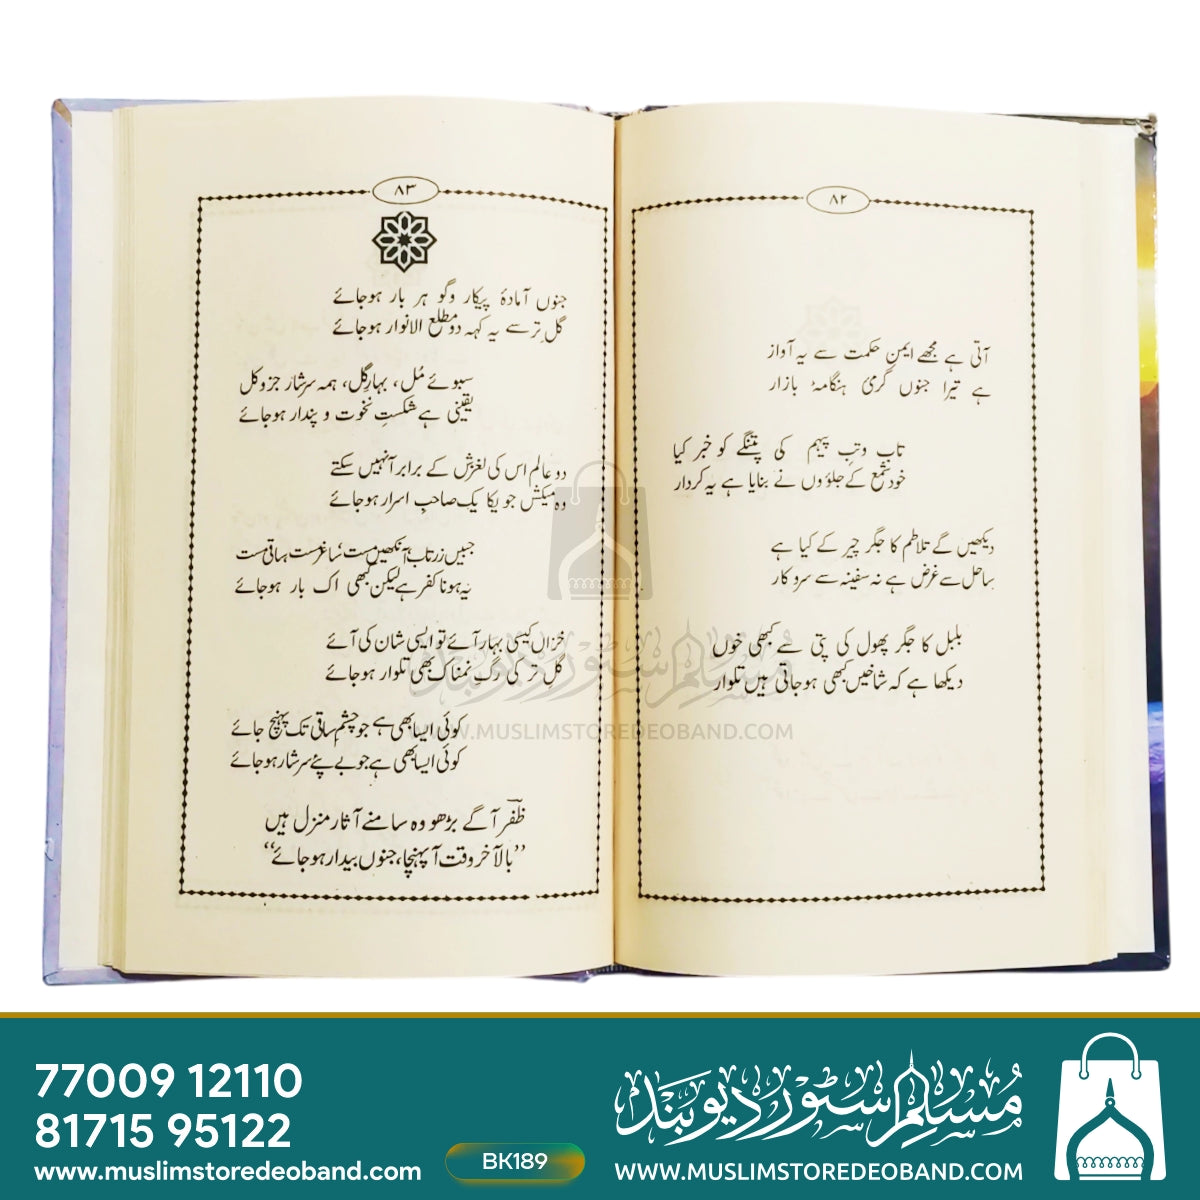 ۸۲
آتی ہے مجھے ایمنِ حکمت سے یہ آواز
ہے تیرا جنوں گرمیٔ ہنگامۂ بازار
تاب و تبِ پیہم کی پتنگے کو خبر کیا
خود شمع کے جلوؤں نے بنایا ہے یہ کردار
دیکھیں گے تلاطم کا جگر چیر کے کیا ہے
ساحل سے غرض ہے نہ سفینہ سے سروکار
بلبل کا جگر پھول کی پتی سے کبھی خوں
دیکھا ہے کہ شاخیں کبھی ہوجاتی ہیں تلوار
۸۳
جنوں آمادۂ پیکار وگو ہر بار ہوجائے
گلِ تر سے یہ کہہ دو مطلع الانوار ہوجائے
سبوئے مُل، بہارِ گل، ہمہ سرشار جزو کل
یقینی ہے شکستِ نخوت و پندار ہوجائے
دو عالم اس کی لغزش کے برابر آنہیں سکتے
وہ میکش جو یکا یک صاحبِ اسرار ہوجائے
جبیں زرتاب، آنکھیں مست، ساغر مست، ساقی مست
یہ ہونا کفر ہے لیکن کبھی اک بار ہوجائے
خزاں کیسی بہار آئے تو ایسی شان کی آئے
گلِ تر کی رگِ نمناک بھی تلوار ہوجائے
کوئی ایسا بھی ہے جو چشمِ ساقی تک پہنچ جائے
کوئی ایسا بھی ہے جو بے پئے سرشار ہوجائے
ظفؔر آگے بڑھو وہ سامنے آثار منزل ہیں
’’بالآخر وقت آپہنچا، جنوں بیدار ہوجائے‘‘
مسلم سٹور دیوبند
WWW.MUSLIMSTOREDEOBAND.COM
77009 12110
81715 95122
www.muslimstoredeoband.com
BK189
مُسلم سٹور دیوبند
WWW.MUSLIMSTOREDEOBAND.COM